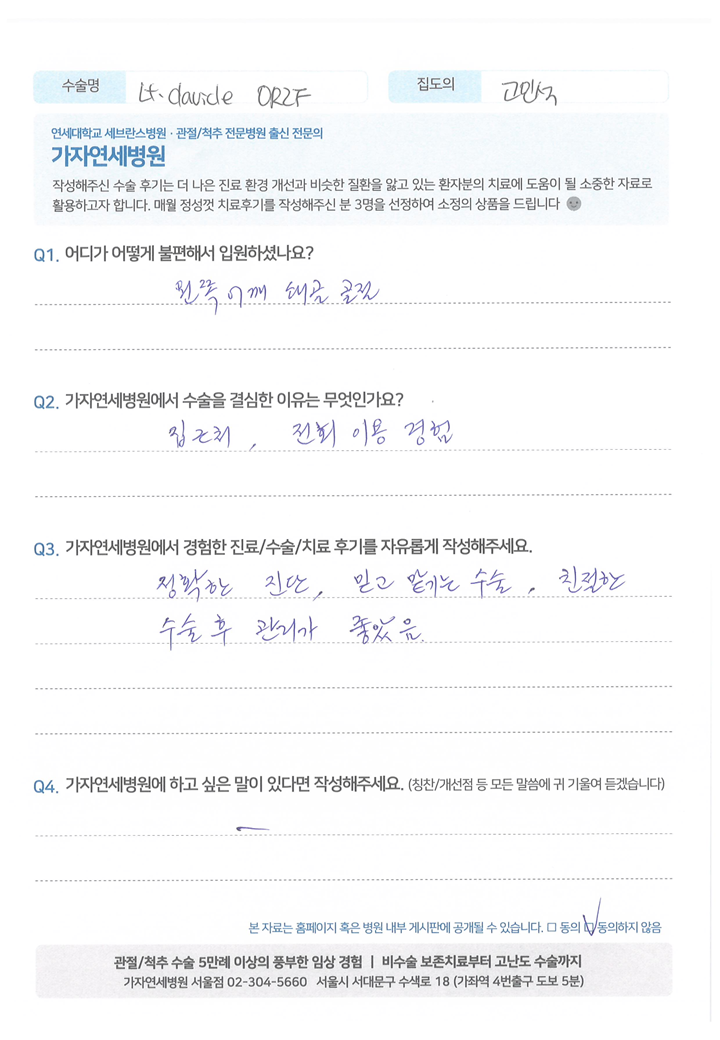 수술명 Lt. clavicle ORIF 집도의 고민석
연세대학교 세브란스병원 · 관절/척추 전문병원 출신 전문의
가자연세병원
작성해주신 수술 후기는 더 나은 진료 환경 개선과 비슷한 질환을 앓고 있는 환자분의 치료에 도움이 될 소중한 자료로
활용하고자 합니다. 매월 정성껏 치료후기를 작성해주신 분 3명을 선정하여 소정의 상품을 드립니다
Q1. 어디가 어떻게 불편해서 입원하셨나요?
왼쪽 어깨 쇄골 골절
Q2. 가자연세병원에서 수술을 결심한 이유는 무엇인가요?
집근처, 전회 이용 경험
Q3. 가자연세병원에서 경험한 진료/수술/치료 후기를 자유롭게 작성해주세요.
정확한 진단, 믿고 맡기는 수술, 친절한
수술 후 관리가 좋았음.
Q4. 가자연세병원에 하고 싶은 말이 있다면 작성해주세요. (칭찬/개선점 등 모든 말씀에 귀 기울여 듣겠습니다)
본 자료는 홈페이지 혹은 병원 내부 게시판에 공개될 수 있습니다. □ 동의 □ 동의하지 않음
관절/척추 수술 5만례 이상의 풍부한 임상 경험 | 비수술 보존치료부터 고난도 수술까지
가자연세병원 서울점 02-304-5660 서울시 서대문구 수색로 18 (가좌역 4번출구 도보 5분)